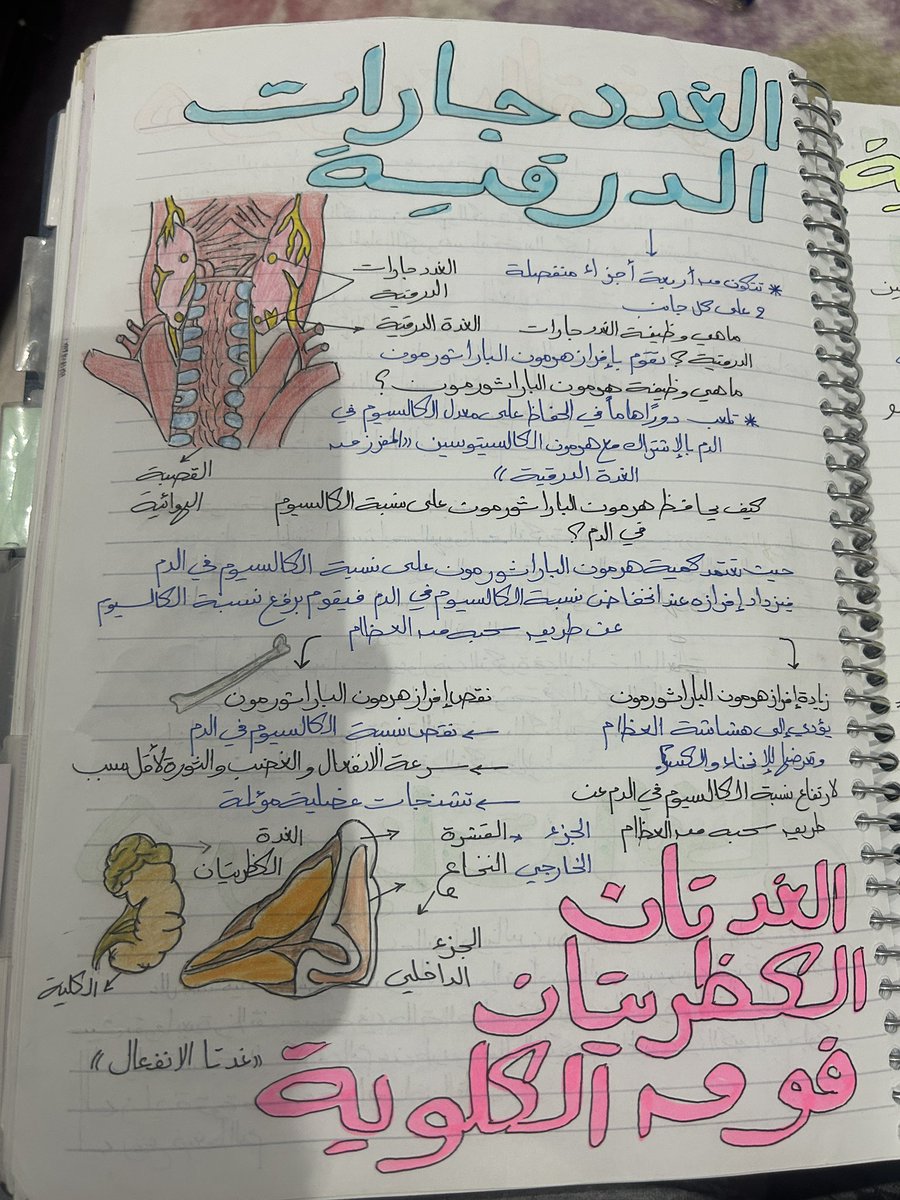 الغدد جارات
الدرقية
* تتكون من أربعة أجزاء منفصلة
2 على كل جانب
الغدد جارات
الدرقية
الغدة الدرقية
القصبة
الهوائية
ماهي وظيفة الغدد جارات
الدرقية؟ تقوم بإفراز هرمون الباراثورمون
ماهي وظيفة هرمون الباراثورمون؟
* تلعب دورًا هاماً في الحفاظ على معدل الكالسيوم في
الدم بالإشتراك مع هرمون الكالسيتوسين «المفرز من
الغدة الدرقية»
كيف يحافظ هرمون الباراثورمون على نسبة الكالسيوم
في الدم؟
حيث تعتمد كمية هرمون الباراثورمون على نسبة الكالسيوم في الدم
فيزداد إفرازه عند انخفاض نسبة الكالسيوم في الدم فيقوم برفع نسبة الكالسيوم
عن طريق سحبه من العظام
زيادة إفراز هرمون الباراثورمون
يؤدي إلى هشاشة العظام
وتعرضها للإنحناء والكسر
لارتفاع نسبة الكالسيوم في الدم عن
طريق سحبه من العظام
نقص إفراز هرمون الباراثورمون
← نقص نسبة الكالسيوم في الدم
← سرعة الانفعال و الغضب و الثورة لأقل سبب
← تشنجات عضلية مؤلمة
الغدة
الكظريتان
الكلية
القشرة ← الجزء
الخارجي
النخاع
الجزء
الداخلي
الغدتان
الكظريتان
فوق الكلوية
«غدتا الانفعال»